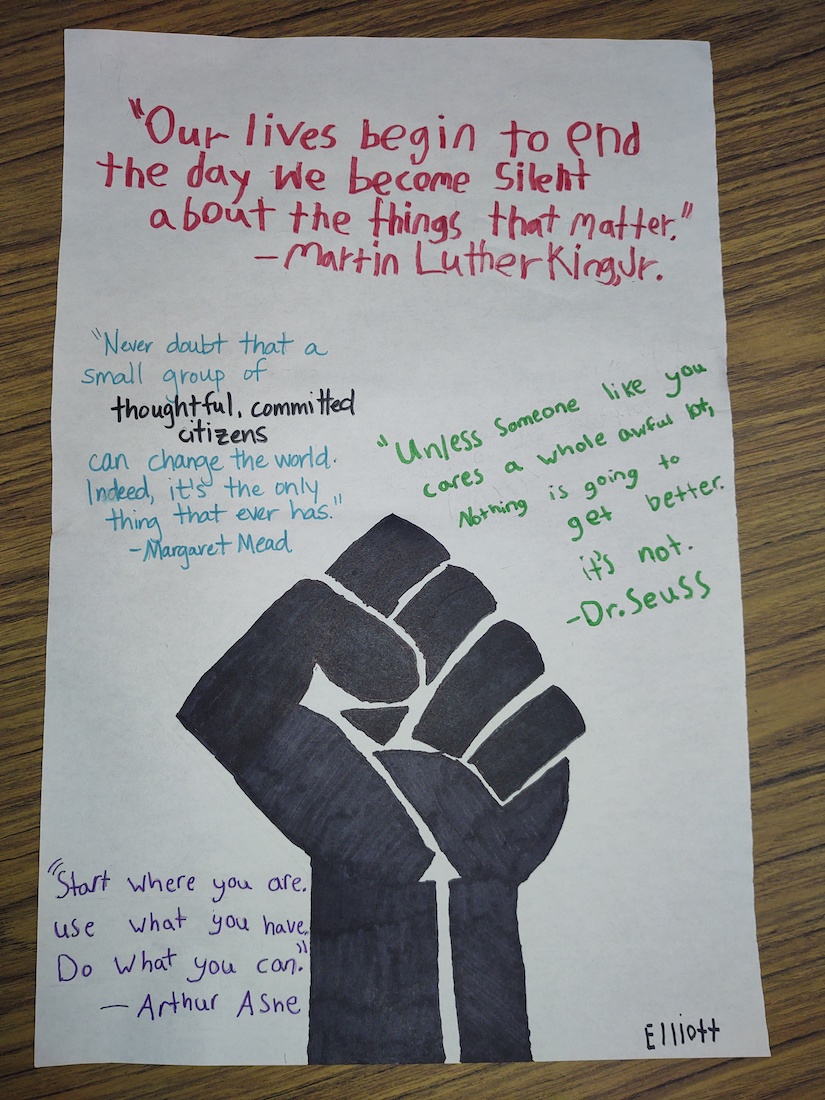 "Our lives begin to end
the day we become silent
about the things that matter."
-Martin Luther King, Jr.
"Never doubt that a
small group of
thoughtful, committed
citizens
can change the world.
Indeed, it's the only
thing that ever has."
-Margaret Mead
"Unless someone like you
cares a whole awful lot,
Nothing is going to
get better.
it's not.
-Dr. Seuss
"Start where you are.
use what you have.
Do what you can."
- Arthur Ashe
Elliott